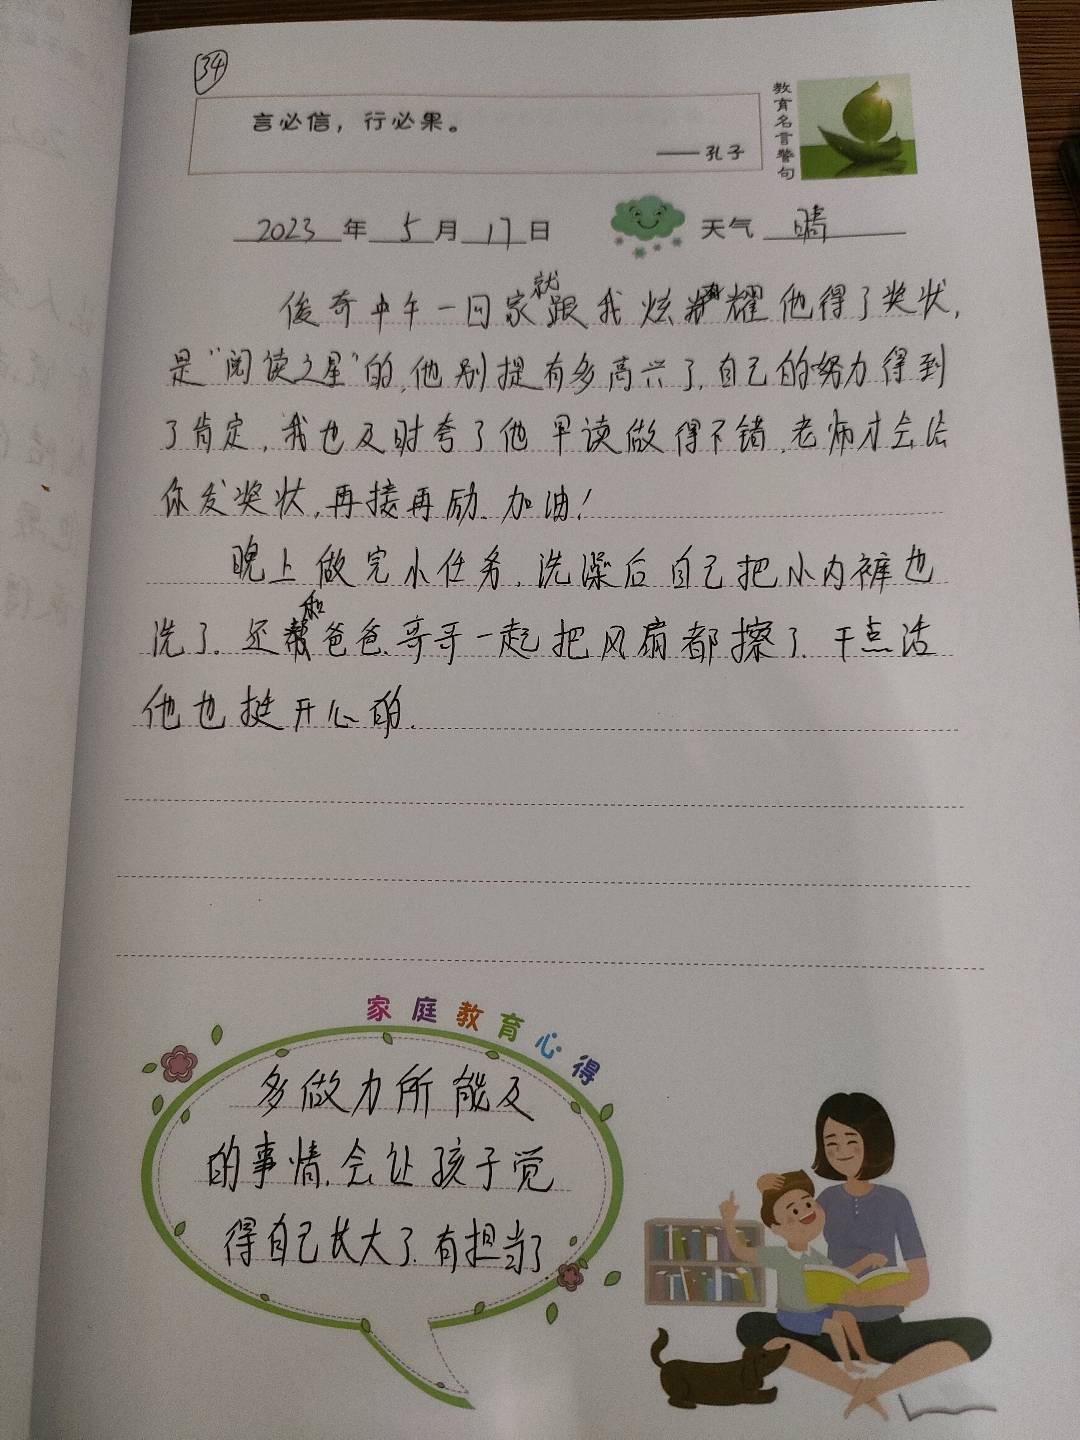 34
言必信，行必果。
——孔子
教育名言警句
2023年5月17日 天气 晴
俊奇中午一回家就跟我炫耀他得了奖状,
是“阅读之星”的,他别提有多高兴了,自己的努力得到
了肯定,我也及时夸了他早读做得不错,老师才会给
你发奖状,再接再励、加油！
晚上做完小任务,洗澡后自己把小内裤也
洗了.还和爸爸、哥哥一起把风扇都擦了.干点活
他也挺开心的.
家庭教育心得
多做力所能及
的事情,会让孩子觉
得自己长大了.有担当了